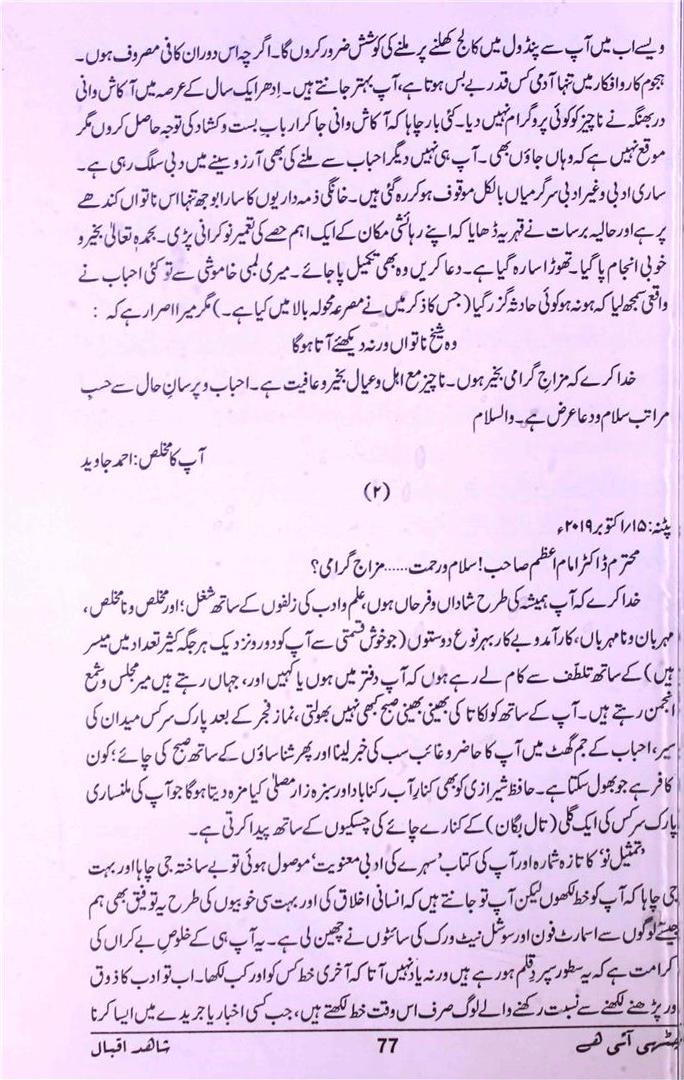 ویسے اب میں آپ سے پنڈول میں کالج کھلنے پر ملنے کی کوشش ضرور کروں گا۔ اگرچہ اس دوران کافی مصروف ہوں۔
ہجوم کار و افکار میں تنہا آدمی کس قدر بے بس ہوتا ہے، آپ بہتر جانتے ہیں۔ اِدھر ایک سال کے عرصہ میں آکاش وانی
دربھنگہ نے ناچیز کو کوئی پروگرام نہیں دیا۔ کئی بار چاہا کہ آکاش وانی جا کر ارباب بست و کشاد کی توجہ حاصل کروں مگر
موقع نہیں ہے کہ وہاں جاؤں بھی۔ آپ ہی نہیں دیگر احباب سے ملنے کی بھی آرزو سینے میں دبی سلگ رہی ہے۔
ساری ادبی و غیر ادبی سرگرمیاں بالکل موقوف ہو کر رہ گئی ہیں۔ خانگی ذمہ داریوں کا سارا بوجھ تنہا اس ناتواں کندھے
پر ہے اور حالیہ برسات نے قہر یہ ڈھایا کہ اپنے رہائشی مکان کے ایک اہم حصے کی تعمیر نو کرانی پڑی۔ بحمدہٖ تعالیٰ بخیر و
خوبی انجام پا گیا۔ تھوڑا سا رہ گیا ہے۔ دعا کریں وہ بھی تکمیل پا جائے۔ میری لمبی خاموشی سے تو کئی احباب نے
واقعی سمجھ لیا کہ ہو نہ ہو کوئی حادثہ گزر گیا (جس کا ذکر میں نے مصرعہ محولہ بالا میں کیا ہے۔) مگر میرا اصرار ہے کہ :
وہ شیخ ناتواں ورنہ دیکھئے آتا ہوگا
خدا کرے کہ مزاجِ گرامی بخیر ہوں۔ ناچیز مع اہل و عیال بخیر و عافیت ہے۔ احباب و پرسانِ حال سے حسبِ
مراتب سلام و دعا عرض ہے۔ والسلام
آپ کا مخلص: احمد جاوید
(۲)
پٹنہ: ۱۵؍اکتوبر ۲۰۱۹ء
محترم ڈاکٹر امام اعظم صاحب! سلام و رحمت...... مزاج گرامی؟
خدا کرے کہ آپ ہمیشہ کی طرح شاداں و فرحاں ہوں، علم و ادب کی زلفوں کے ساتھ شغل؛ اور مخلص و نا مخلص،
مہربان و نا مہرباں، کارآمد و بے کار بہر نوع دوستوں (جو خوش قسمتی سے آپ کو دور و نزدیک ہر جگہ کثیر تعداد میں میسر
ہیں) کے ساتھ تلطّف سے کام لے رہے ہوں کہ آپ دفتر میں ہوں یا کہیں اور، جہاں رہتے ہیں میر مجلس و شمع
انجمن رہتے ہیں۔ آپ کے ساتھ کولکاتا کی بھینی بھینی صبح کبھی نہیں بھولتی، نماز فجر کے بعد پارک سرکس میدان کی
سیر، احباب کے جم گھٹ میں آپ کا حاضر و غائب سب کی خبر لینا اور پھر شناساؤں کے ساتھ صبح کی چائے؛ کون
کافر ہے جو بھول سکتا ہے۔ حافظ شیرازی کو بھی کنار آب رکنا باد اور سبزہ زار مصلیٰ کیا مزہ دیتا ہوگا جو آپ کی ملنساری
پارک سرکس کی ایک گلی (تال بگان) کے کنارے چائے کی چسکیوں کے ساتھ پیدا کرتی ہے۔
'تمثیل نو' کا تازہ شمارہ اور آپ کی کتاب 'سہرے کی ادبی معنویت' موصول ہوئی تو بے ساختہ جی چاہا اور بہت
جی چاہا کہ آپ کو خط لکھوں لیکن آپ تو جانتے ہیں کہ انسانی اخلاق کی اور بہت سی خوبیوں کی طرح یہ توفیق بھی ہم
جیسے لوگوں سے اسمارٹ فون اور سوشل نیٹ ورک کی سائٹوں نے چھین لی ہے۔ یہ آپ ہی کے خلوص بے کراں کی
کرامت ہے کہ یہ سطور سپردِ قلم ہو رہے ہیں ورنہ یاد نہیں آتا کہ آخری خط کس کو اور کب لکھا۔ اب تو ادب کا ذوق
اور پڑھنے لکھنے سے نسبت رکھنے والے لوگ صرف اس وقت خط لکھتے ہیں، جب کسی اخبار یا جریدے میں ایسا کرنا
چٹھی آئی ھے 77 شاھد اقبال